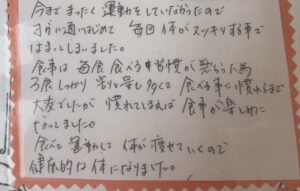 今まで まったく 運動をしていなかったので
すぐに通いはじめて 毎回 体が スッキリする事で
はまってしまいました。
食事は 毎食 食べる習慣が 悪かった為
3食しっかり 量も多くて 食べる事に 慣れるまで
大変でしたが 慣れてしまえば 食事が 楽しみに
なってました。
食べて 運動して 体が 痩せていくので
健康的な 体になりました。